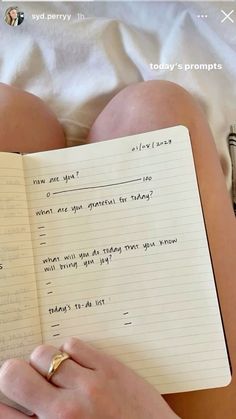 syd.perryy 1h
today's prompts
01/08/2023
how are you?
0 100
what are you grateful for today?
what will you do today that you know
will bring you joy?
today's to-do list